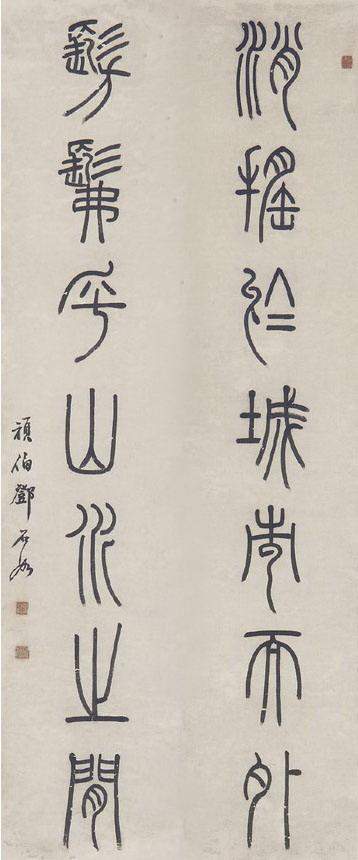 消搖於城市而外
髣髴乎山水之間
頑伯鄧石如